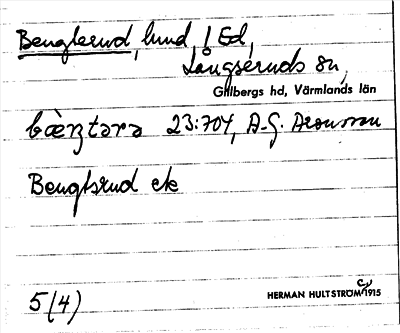 Bengtsrud, hmd, i Ed,
Långseruds sn,
Gillbergs hd, Värmlands län
bæ̀ŋtərə 23:704, A.G. Aronsson
Bengtsrud etc
5(4)
HERMAN HULTSTRÖM 1915